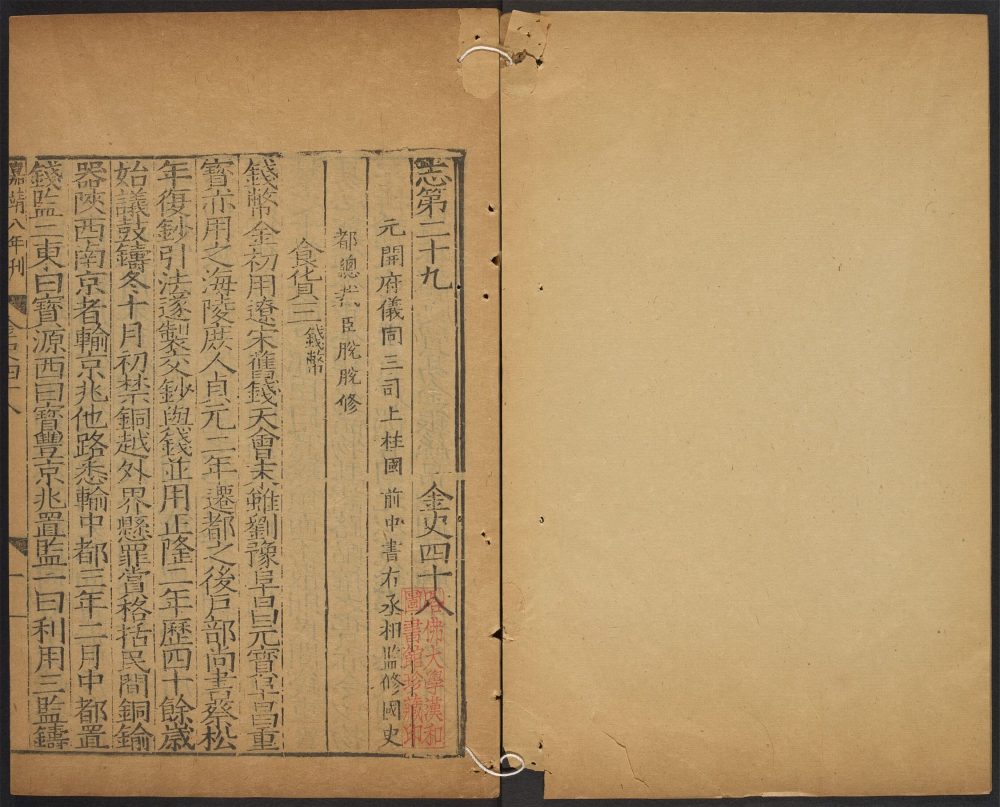 志第二十九　金史四十八
元開府儀同三司上柱國前中書右丞相監修國史
都總裁臣脫脫修
食貨三錢幣
錢幣金初用遼宋舊錢天會末雖劉豫阜昌元寶阜昌重
寶亦用之海陵庶人貞元二年遷都之後戶部尚書蔡松
年復鈔引法遂製交鈔與錢並用正隆二年歷四十餘歲
始議鼓鑄冬十月初禁銅越外界懸罪賞格括民間銅鍮
器陝西南京者輸京兆他路悉輸中都三年二月中都置
錢監二東曰寶源西曰寶豐京兆置監一曰利用三監鑄
嘉靖八年刊
哈佛大學漢和
圖書館珍藏印